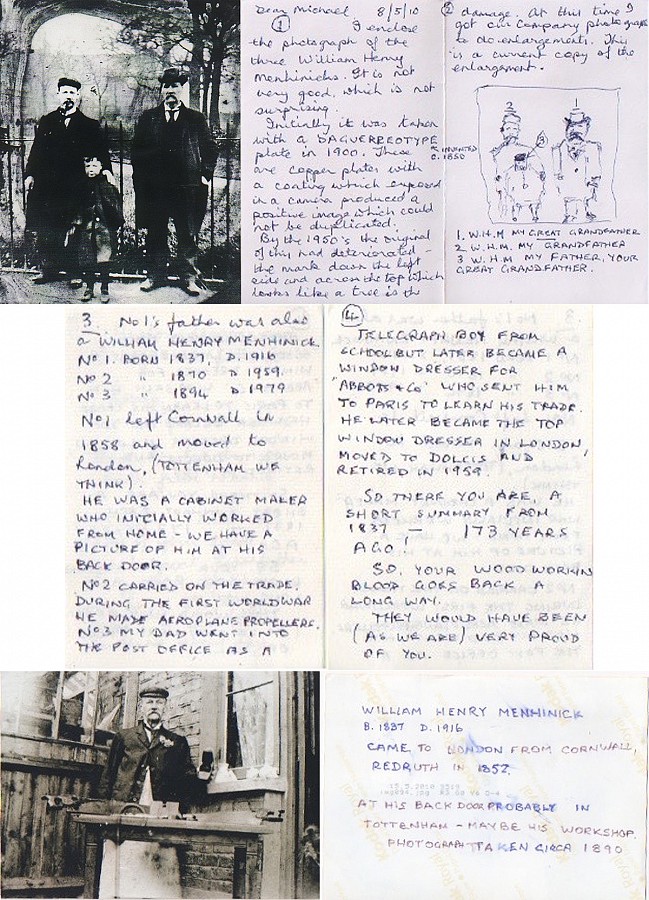 Dear Michael, 8/5/10
① I enclose
the photograph of the
three William Henry
Menhinicks. It is not
very good, which is not
surprising.
Initially it was taken
with a DAGUERREOTYPE
plate in 1900. These
are copper plates with
a coating which exposed
in a camera produced a
positive image which could
not be duplicated.
By the 1950's the original
of this had deteriorated
the mark down the left
side and across the top which
looks like a tree is the
INVENTED
C. 1850
② damage. At this time I
got our Company photographer
to do enlargements. This
is a current copy of the
enlargement.
2 1
3
1. W.H.M MY GREAT GRANDFATHER
2 W.H.M. MY GRANDFATHER
3 W.H.M MY FATHER, YOUR
GREAT GRANDFATHER.
3. No1's father was also
a WILLIAM HENRY MENHINICK
No 1. BORN 1837. D. 1916
No 2 " 1870 D 1959.
No 3 " 1894 D 1979
No1 left Cornwall in
1858 and moved to
London, (TOTTENHAM WE
THINK).
HE WAS A CABINET MAKER
WHO INITIALLY WORKED
FROM HOME - WE HAVE A
PICTURE OF HIM AT HIS
BACK DOOR.
No2 CARRIED ON THE TRADE.
DURING THE FIRST WORLD WAR
HE MADE AEROPLANE PROPELLERS.
No3 MY DAD WENT INTO
THE POST OFFICE AS A
④
TELEGRAPH BOY FROM
SCHOOL BUT LATER BECAME A
WINDOW DRESSER FOR
"ABBOTS & Co" WHO SENT HIM
TO PARIS TO LEARN HIS TRADE.
HE LATER BECAME THE TOP
WINDOW DRESSER IN LONDON,
MOVED TO DOLCIS AND
RETIRED IN 1959.
SO THERE YOU ARE, A
SHORT SUMMARY FROM
1837 — 173 YEARS
AGO.
SO, YOUR WOOD WORKIN
BLOOD GOES BACK A
LONG WAY.
THEY WOULD HAVE BEEN
(AS WE ARE) VERY PROUD
OF YOU.
WILLIAM HENRY MENHINICK
B. 1837 D. 1916
CAME TO LONDON FROM CORNWALL,
REDRUTH IN 1852.
AT HIS BACK DOOR PROBABLY IN
TOTTENHAM - MAYBE HIS WORKSHOP.
PHOTOGRAPH TAKEN CIRCA 1890